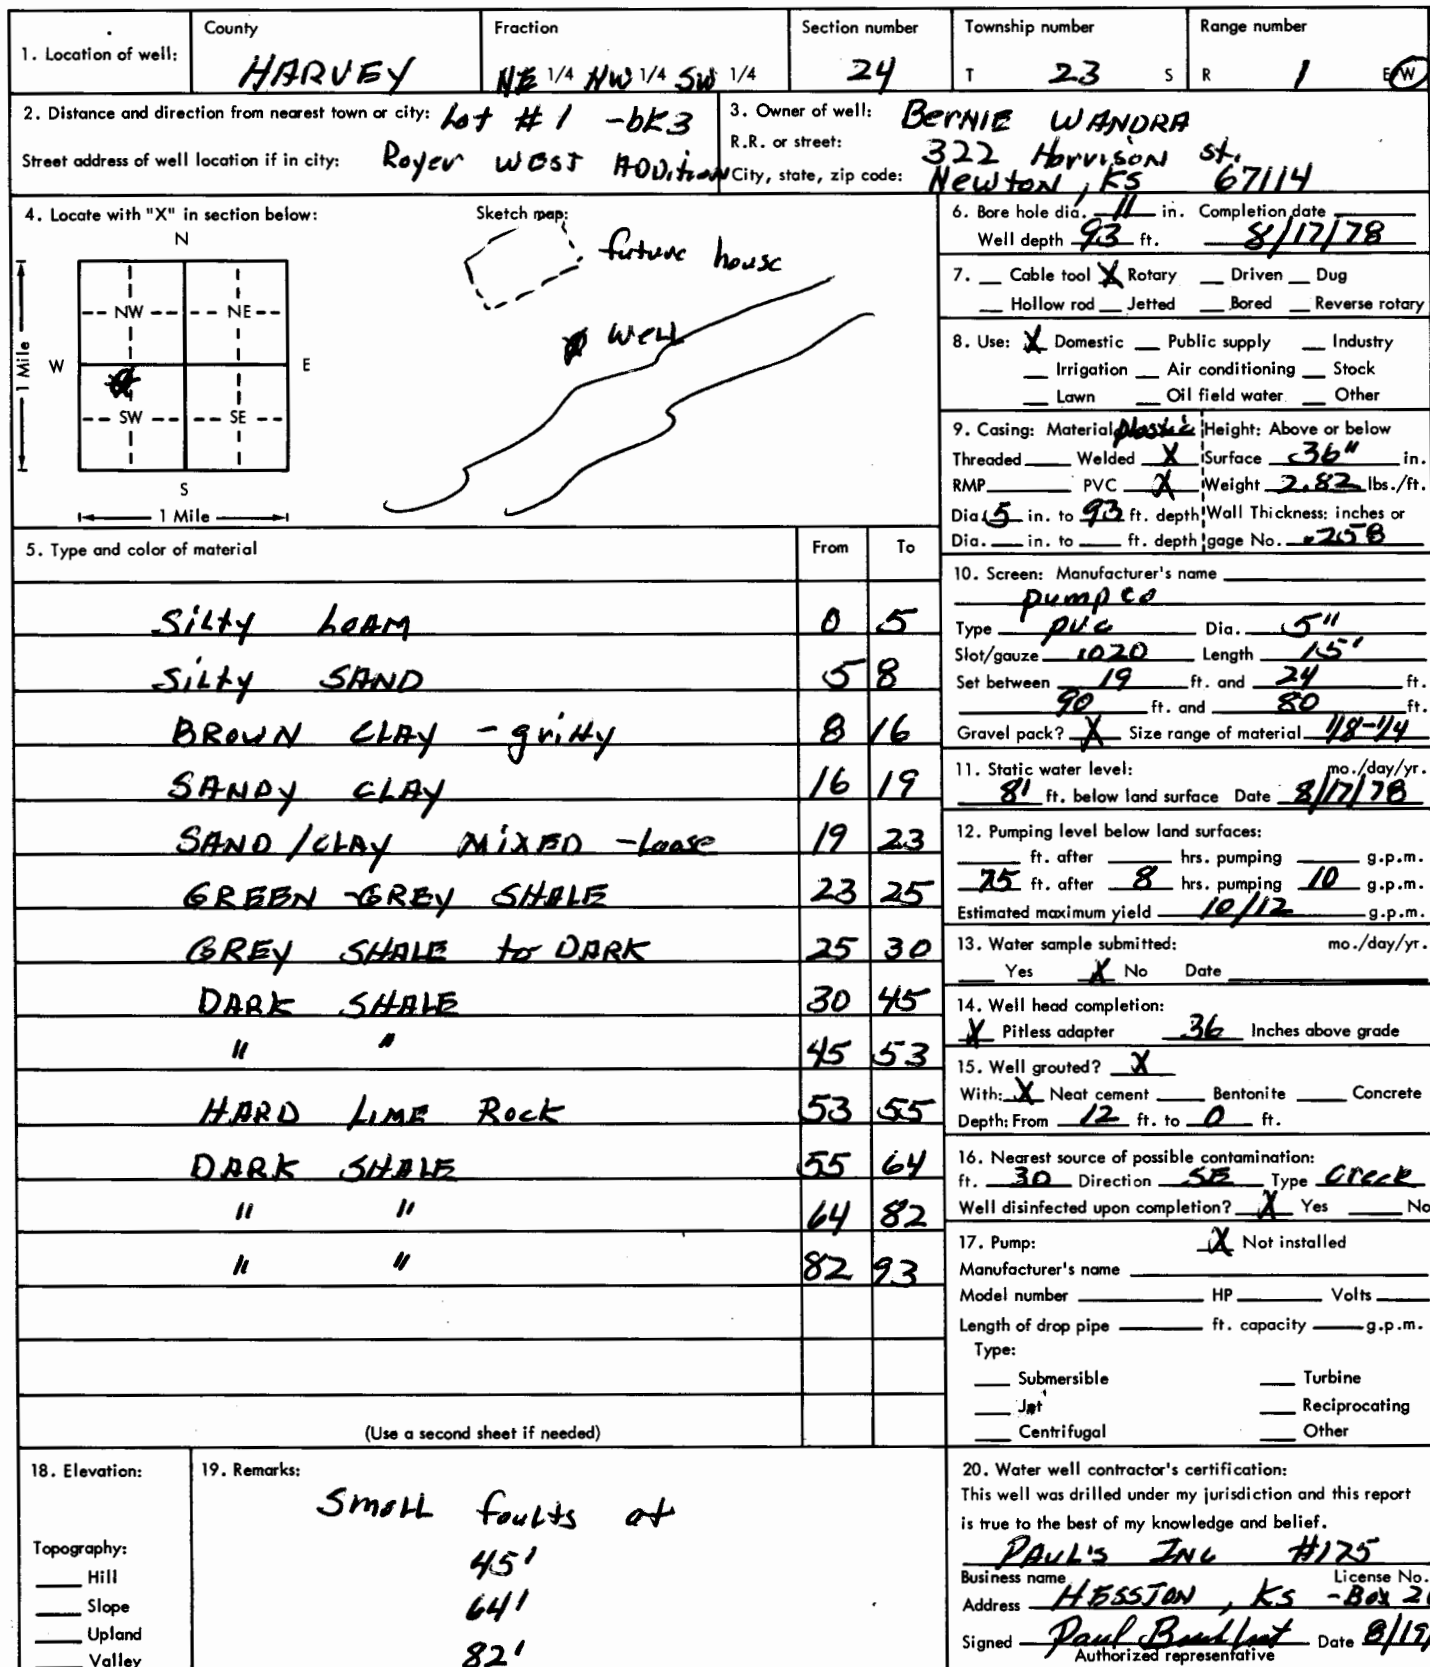 1. Location of well:
County
HARVEY
Fraction
NE 1/4 NW 1/4 SW 1/4
Section number
24
Township number
T 23 S
Range number
R 1 E/W
2. Distance and direction from nearest town or city: Lot # 1 - bk3
Street address of well location if in city: Royer WEST ADDition
3. Owner of well: BERNIE WANDRA
R.R. or street: 322 Harvison st.
City, state, zip code: Newton, KS 67114
4. Locate with "X" in section below:
N
NW NE
W E
SW SE
S
1 Mile
1 Mile
Sketch map:
future house
well
6. Bore hole dia. 11 in. Completion date
Well depth 93 ft. 8/17/78
7. Cable tool X Rotary Driven Dug
Hollow rod Jetted Bored Reverse rotary
8. Use: X Domestic Public supply Industry
Irrigation Air conditioning Stock
Lawn Oil field water Other
9. Casing: Material plastic Height: Above or below
Threaded Welded X Surface 36" in.
RMP PVC X Weight 2.82 lbs./ft.
Dia. 5 in. to 93 ft. depth Wall Thickness: inches or
Dia. in. to ft. depth gage No. .258
5. Type and color of material From To
SiLty LOAM 0 5
SiLty SAND 5 8
BROWN CLAY - gritty 8 16
SANDY CLAY 16 19
SAND/CLAY MiXED - Loose 19 23
GREEN-GREY SHALE 23 25
GREY SHALE to DARK 25 30
DARK SHALE 30 45
" " 45 53
HARD LIME Rock 53 55
DARK SHALE 55 64
" " 64 82
" " 82 93
(Use a second sheet if needed)
10. Screen: Manufacturer's name
pump co
Type pvc Dia. 5"
Slot/gauze .020 Length 15'
Set between 19 ft. and 24 ft.
90 ft. and 80 ft.
Gravel pack? X Size range of material 1/8-1/4
11. Static water level: mo./day/yr.
8' ft. below land surface Date 8/17/78
12. Pumping level below land surfaces:
ft. after hrs. pumping g.p.m.
75 ft. after 8 hrs. pumping 10 g.p.m.
Estimated maximum yield 10/12 g.p.m.
13. Water sample submitted: mo./day/yr.
Yes X No Date
14. Well head completion:
X Pitless adapter 36 Inches above grade
15. Well grouted? X
With: X Neat cement Bentonite Concrete
Depth: From 12 ft. to 0 ft.
16. Nearest source of possible contamination:
ft. 30 Direction SE Type creek
Well disinfected upon completion? X Yes No
17. Pump: X Not installed
Manufacturer's name
Model number HP Volts
Length of drop pipe ft. capacity g.p.m.
Type:
Submersible Turbine
Jet Reciprocating
Centrifugal Other
18. Elevation:
Topography:
Hill
Slope
Upland
Valley
19. Remarks:
SmaLL fauLts at
45'
64'
82'
20. Water well contractor's certification:
This well was drilled under my jurisdiction and this report
is true to the best of my knowledge and belief.
PAUL'S INC #175
Business name License No.
Address HESSTON, KS - Box 2
Signed Paul Date 8/19/
Authorized representative